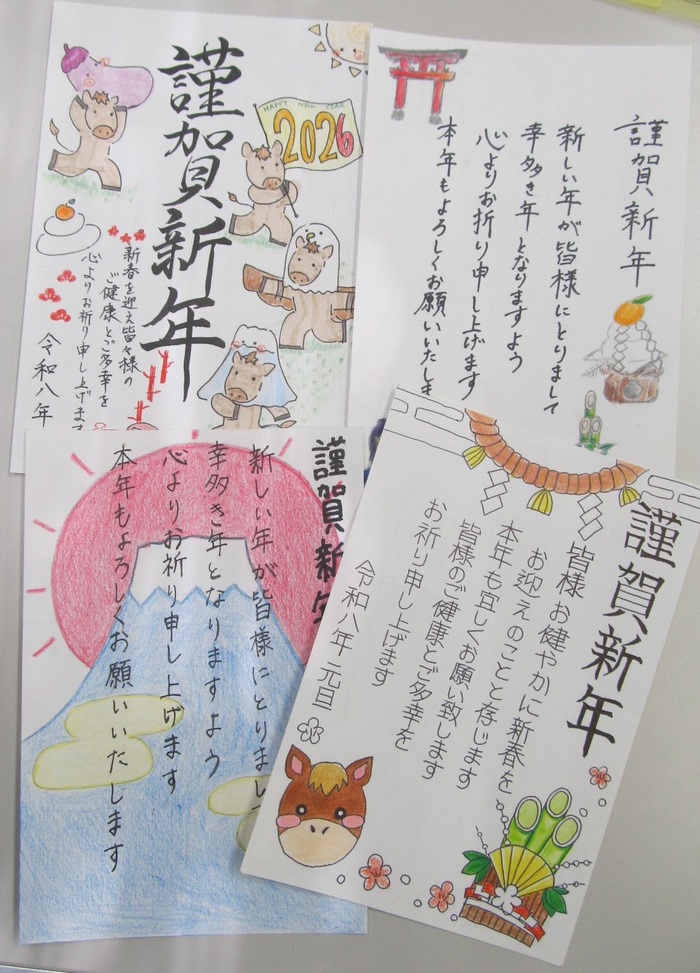 謹賀新年
HAPPY NEW YEAR
2026
新春を迎え皆々様の
ご健康とご多幸を
心よりお祈り申し上げます
令和八年
謹賀新年
新しい年が皆様にとりまして
幸多き年となりますよう
心よりお祈り申し上げます
本年もよろしくお願いいたしま
謹賀新年
新しい年が皆様にとりまして
幸多き年となりますよう
心よりお祈り申し上げます
本年もよろしくお願いいたします
謹賀新年
皆様お健やかに新春を
お迎えのことと存じます
本年も宜しくお願い致します
皆様のご健康とご多幸を
お祈り申し上げます
令和八年 元旦